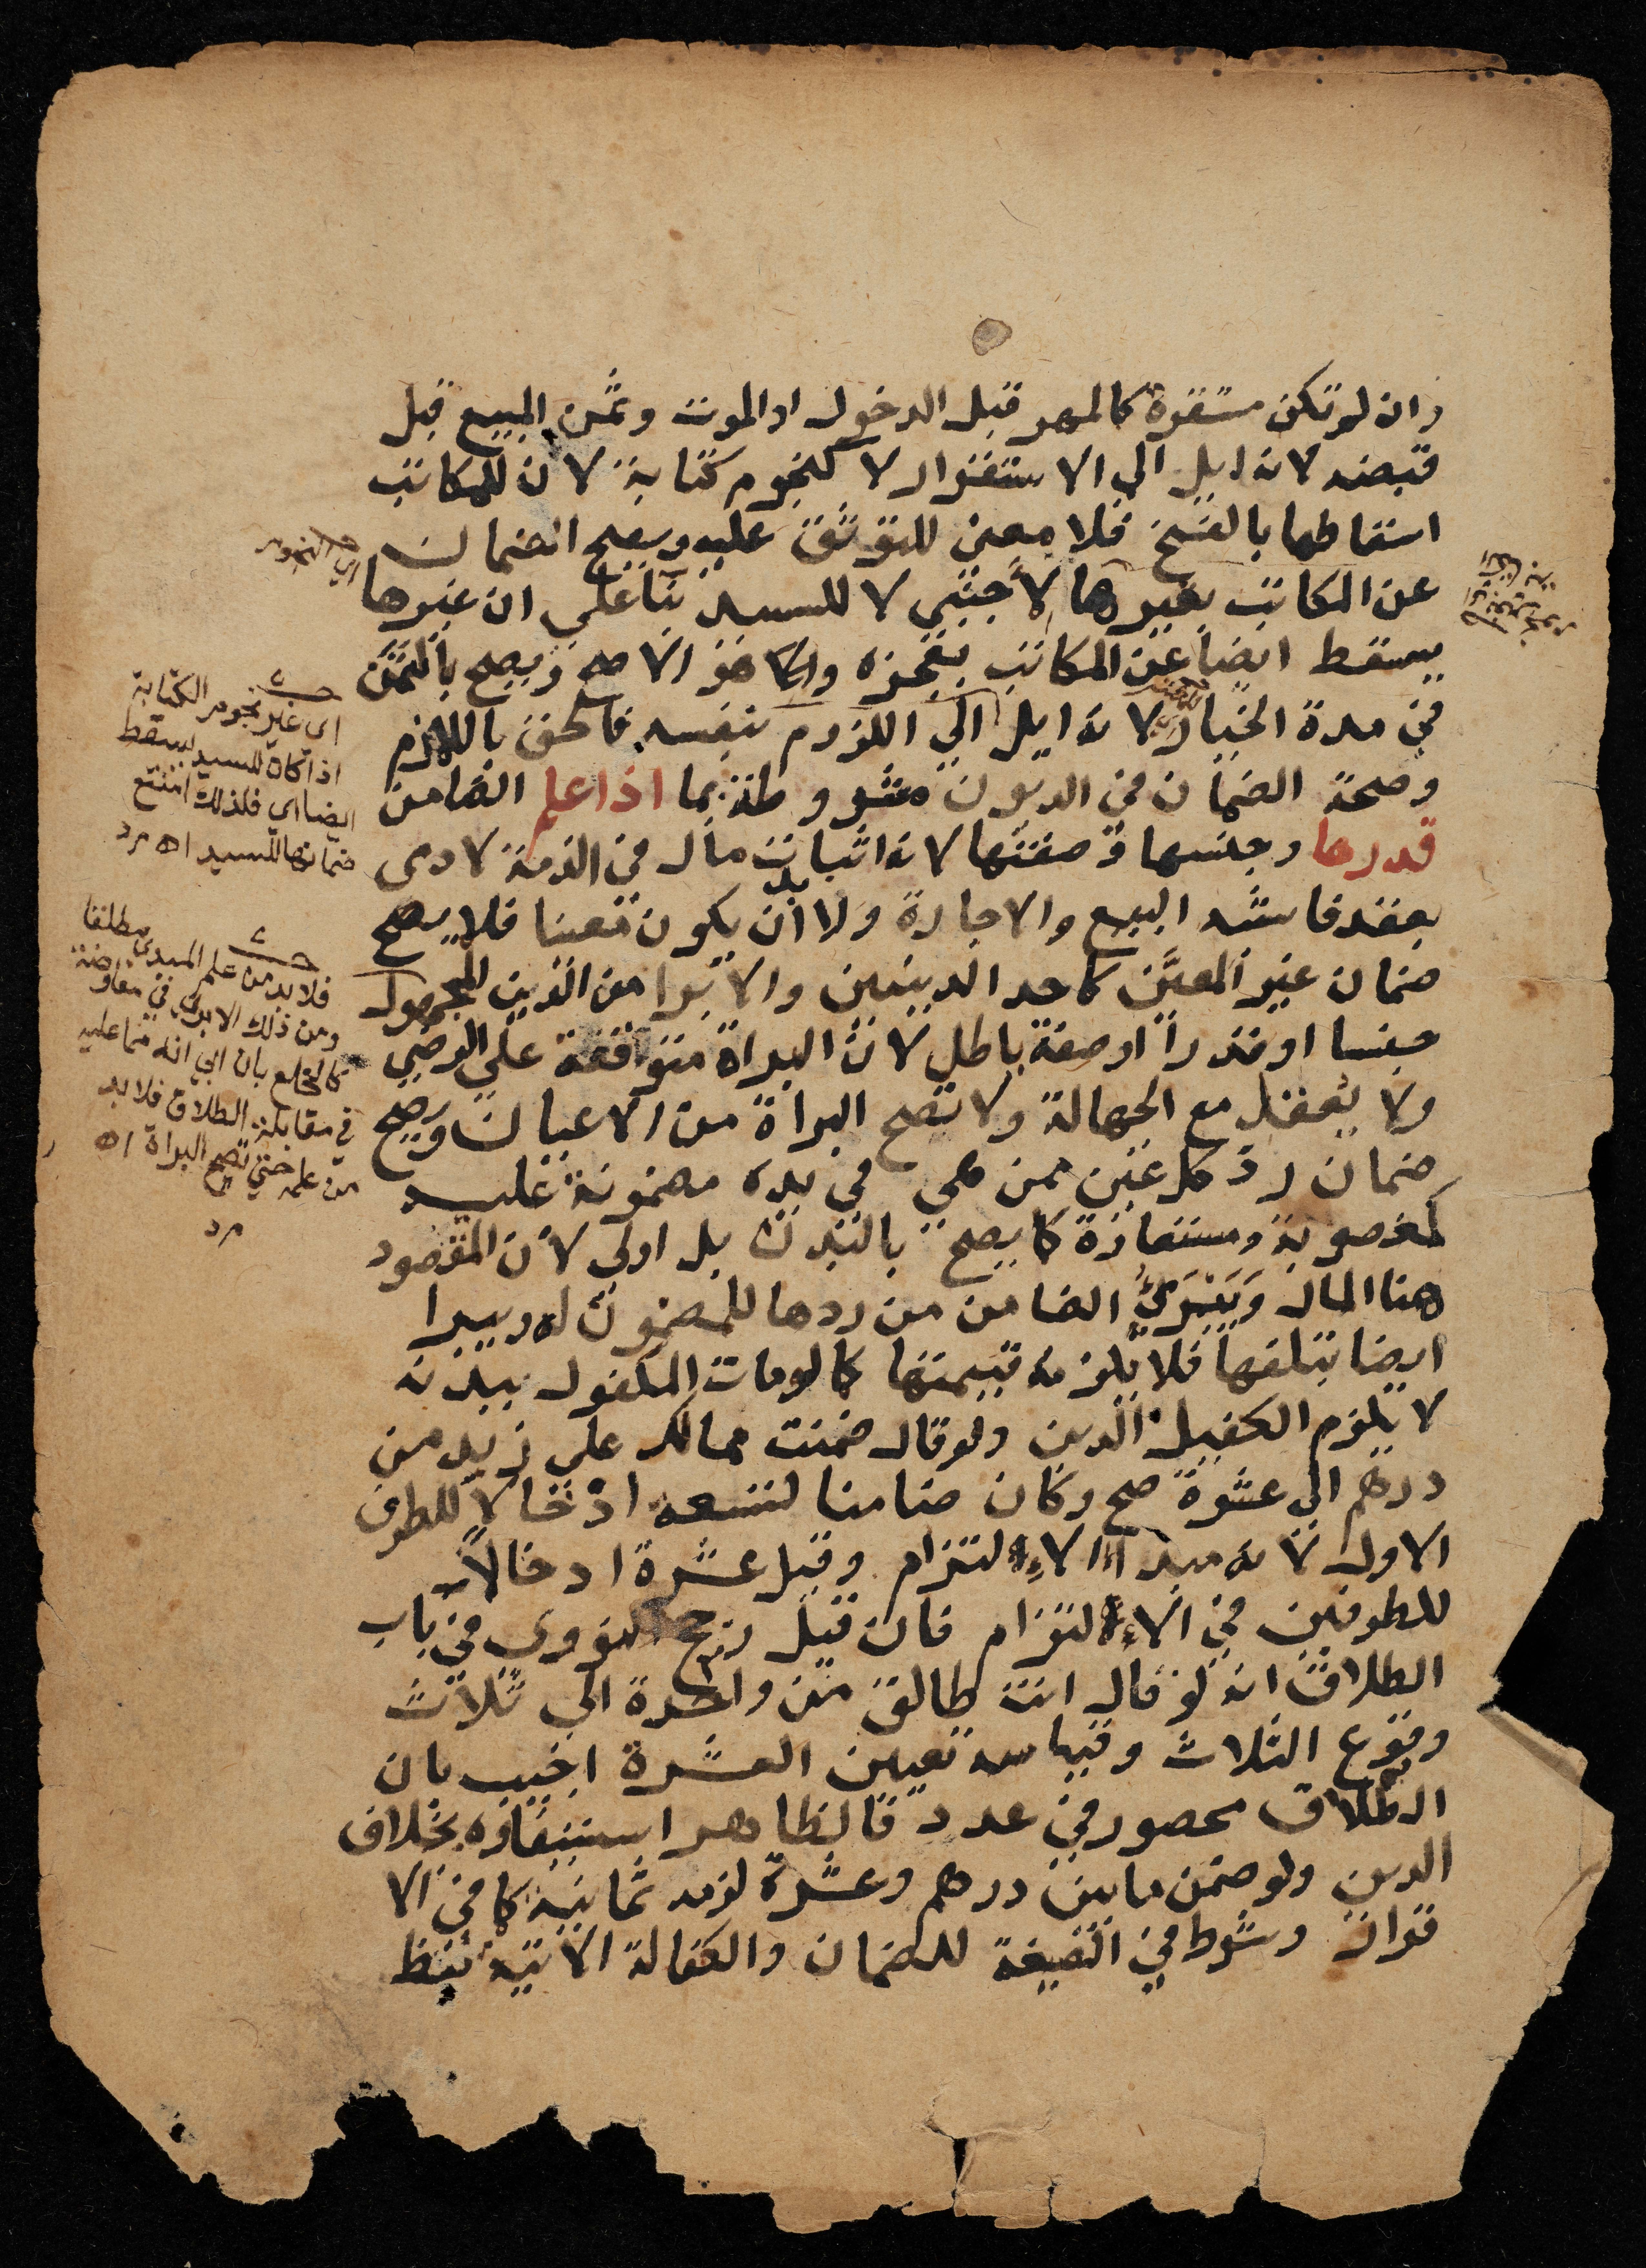 وان لم تكن مستقرة كالمهر قبل الدخول او الموت وثمن المبيع قبل
قبضه لانه ايل الي الاستقرار لا كنجوم كتابة لان للمكاتب
اسقاطها بالفسخ فلا معني للتوثق عليه ويصح الضمان
عن المكاتب بغيرها لاجنبي لا للسيد بنا علي ان غيرها
يسقط ايضا عن المكاتب بعجزه وهو الاصح ويصح بالثمن
في مدة الخيار لانه ايل الي اللزوم بنفسه فالحق باللازم
وصحة الضمان في الديون مشروطة بما اذا علم الضامن
قدرها وجنسها وصفتها لانه اثبات مال في الذمة لادمي
بعقد فاشبه البيع والاجارة ولا بد ان يكون معينا فلا يصح
ضمان غير المعيَّن كاحد الدينين والابرا من الدين المجهول
جنسا او قدراً او صفة باطل لان البراة متوقفة علي الرضي
ولا يعقل مع الجهالة ولا تصح البراة من الاعيان ويصح
ضمان رد كل عين ممن هي في يده مضمونة عليه
كمغصوبة ومستعارة كما يصح بالبدن بل اولي لان المقصود
هنا المال وَيَبْرَيُ الضامن من ردها للمضمون له ويبرا
ايضا بتلفها فلا يلزمه قيمتها كما لو مات المكفول ببدنه
لا يلزم الكفيل الدين ولو قال ضمنت مما لك علي زيد من
درهم الي عشرة صح وكان ضامنا لتسعة ادخالا للطرف
الاول لانه مبدا الالتزام وقيل عشرة ادخالاً
للطرفين في الالتزام فان قيل رجح النووي في باب
الطلاق انه لو قال انت طالق من واحدة الي ثلاث
وقوع الثلاث وقياسه تعيين العشرة اجيب بان
الطلاق محصور في عدد فالظاهر استيفاوه بخلاف
الدين ولو ضمن ما بين درهم وعشرة لزمه ثمانية كما في الا
قرار وشرط في الصيغة للضمان والكفالة الاتية لفظ
اي النجوم
اي غير نجوم الكتابة
اذا كان للسيد يسقط
ايضا اي فلذلك امتنع
ضمانها للسيد اه م د
فلا بد من علم المبري مطلقا
ومن ذلك الابرا في معاوضة
كالخلع بان ابراته مما عليه
في مقابلة الطلاق فلا بد
من علمه حتي تصح البراة اه
م د